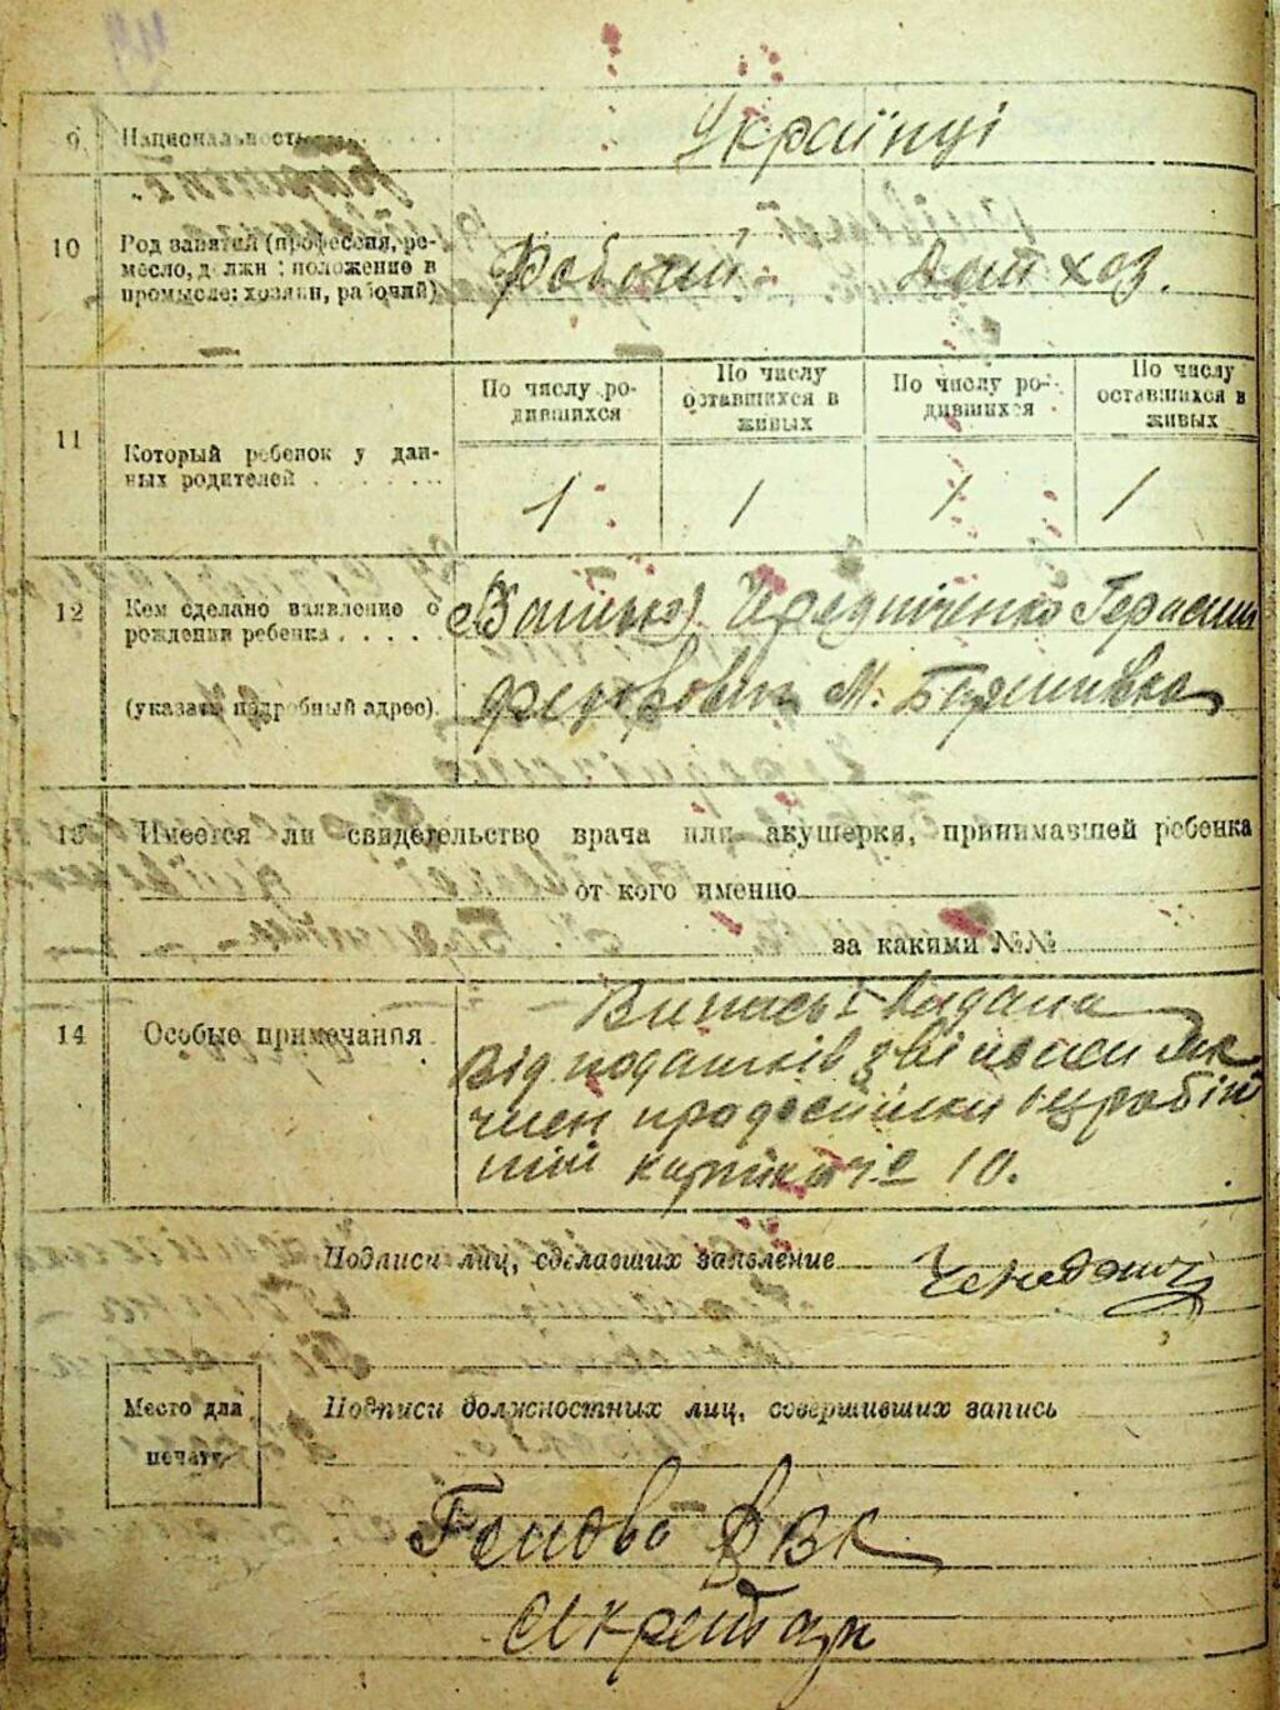 9. Национальность
Українці
10
Род занятий (профессия, ре-
месло, должн; положение в
промысле: хозяин, рабочий)
Робочий
дом хоз.
11
Который ребенок у дан-
ных родителей
По числу ро-
дившихся
По числу
оставшихся в
живых
По числу ро-
дившихся
По числу
оставшихся в
живых
1 1 1 1
12
Кем сделано заявление о
рождении ребенка
(указать подробный адрес).
(Батько) Чередніченко Герасим
Федорович М.
13 Имеется ли свидетельство врача или акушерки, принимавшей ребенка
от кого именно
за какими №№
14
Особые примечания
Випись видана
Від податків звільнен як
член
10.
Подписи лиц, сделавших заявление
Место для
печати
Подписи должностных лиц, совершивших запись
Голова РВК
Секретарь